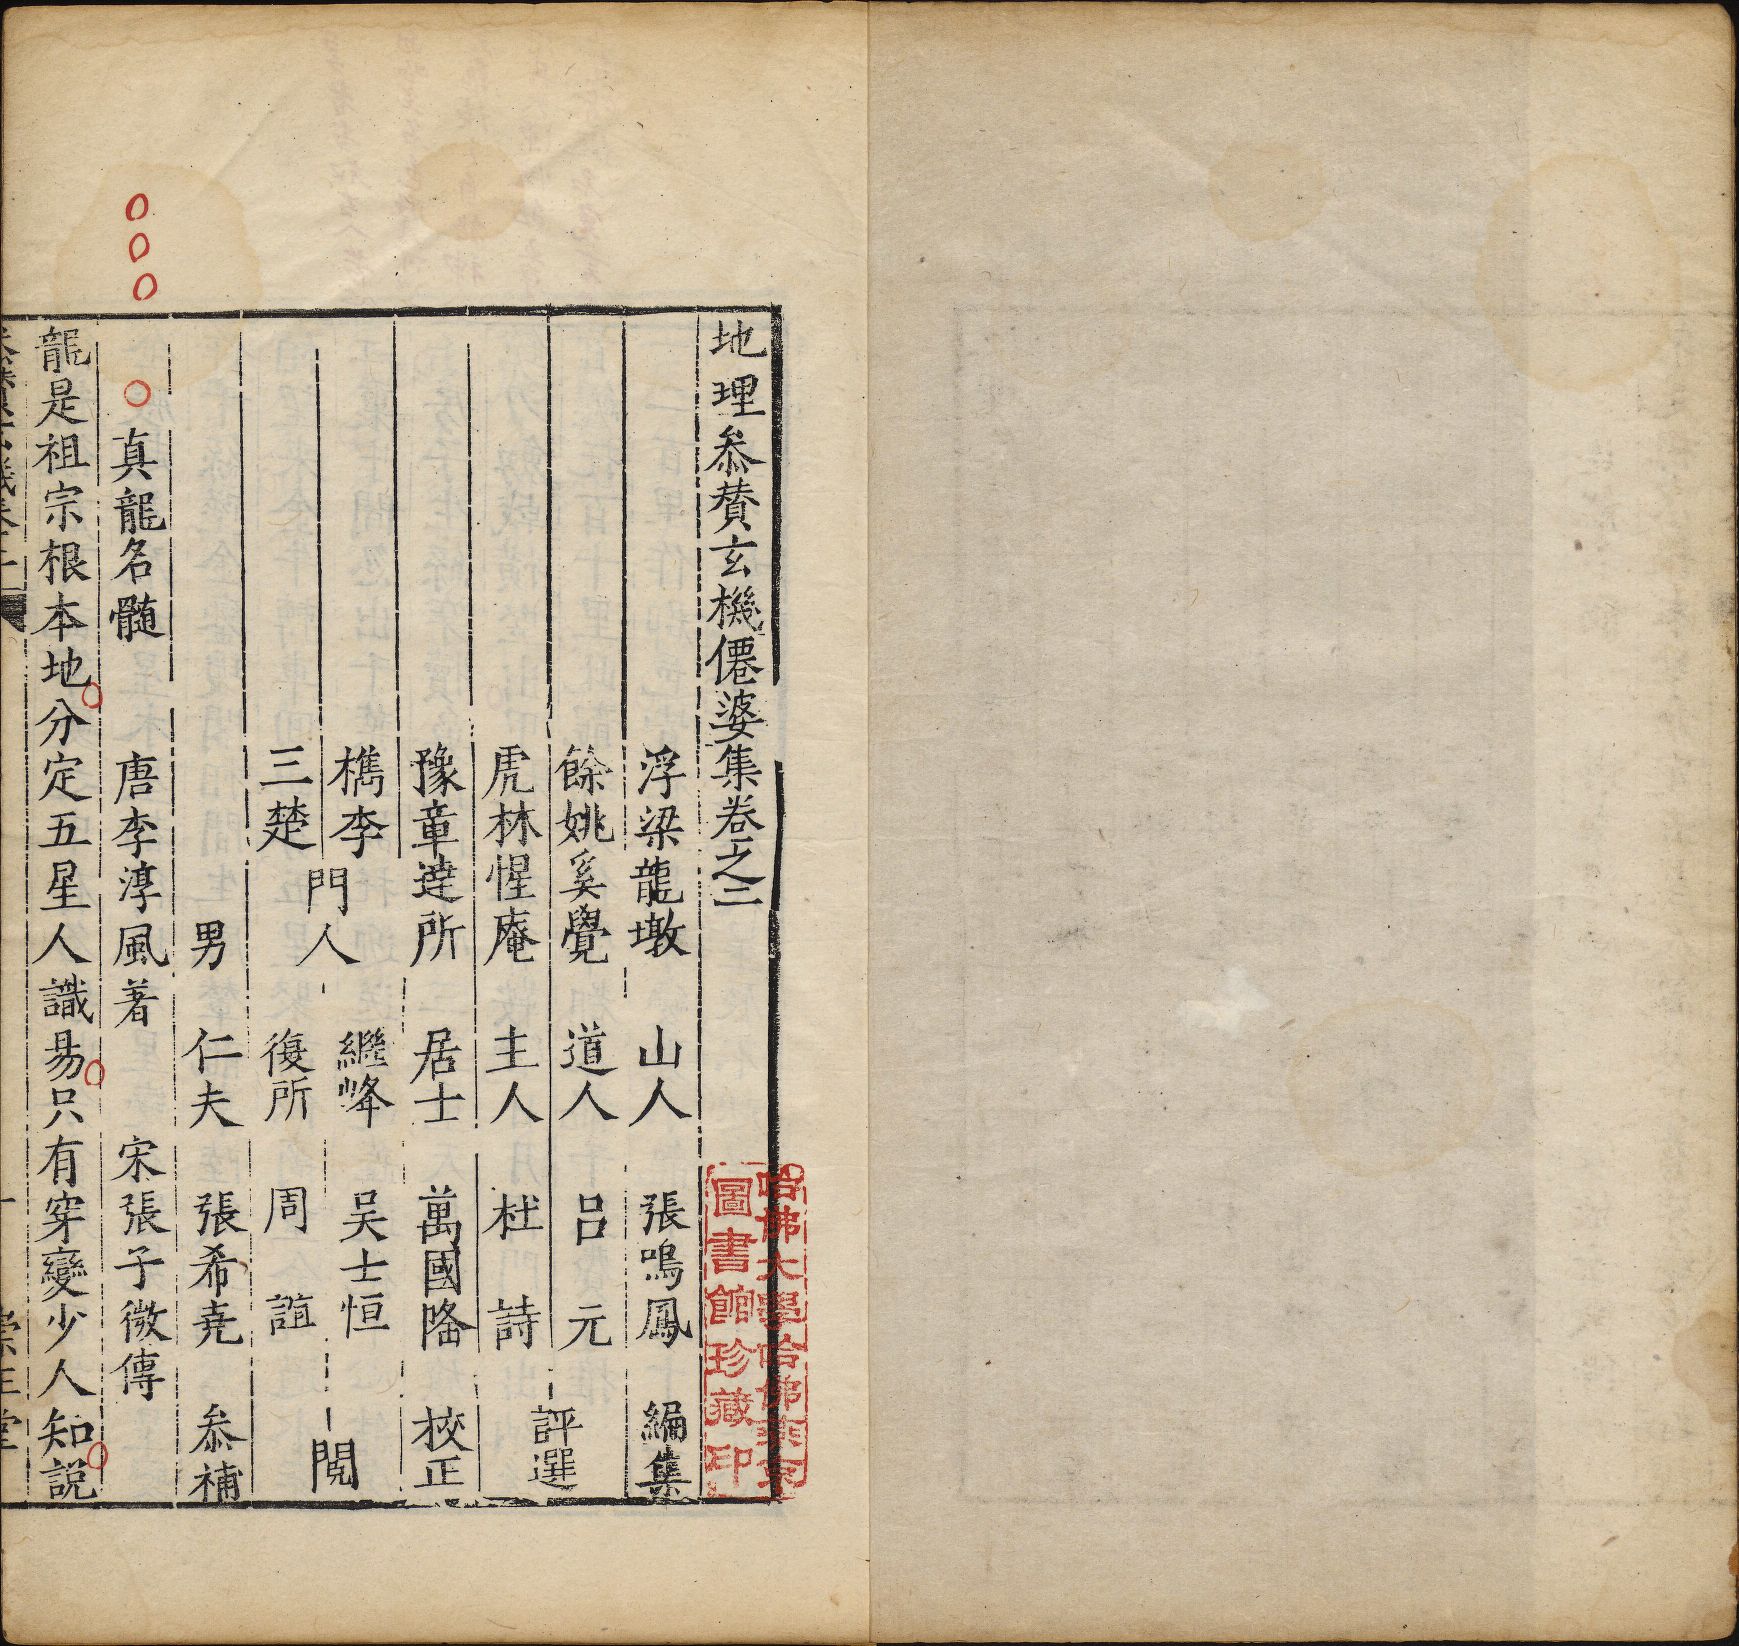 地理叅賛玄機僊婆集卷之二
浮梁龍墩山人張鳴鳳編集
餘姚奚覺道人呂元
虎林惺庵主人杜詩
評選
豫章逹所居士萬國隆校正
檇李
繼峰吴士恒
三楚
復所周誼
門人
閱
男仁夫張希堯叅補
真龍名髓唐李淳風著宋張子微傳
龍是祖宗根本地分定五星人識易只有穿變少人知説
哈佛大學哈佛燕京
圖書館珍藏印